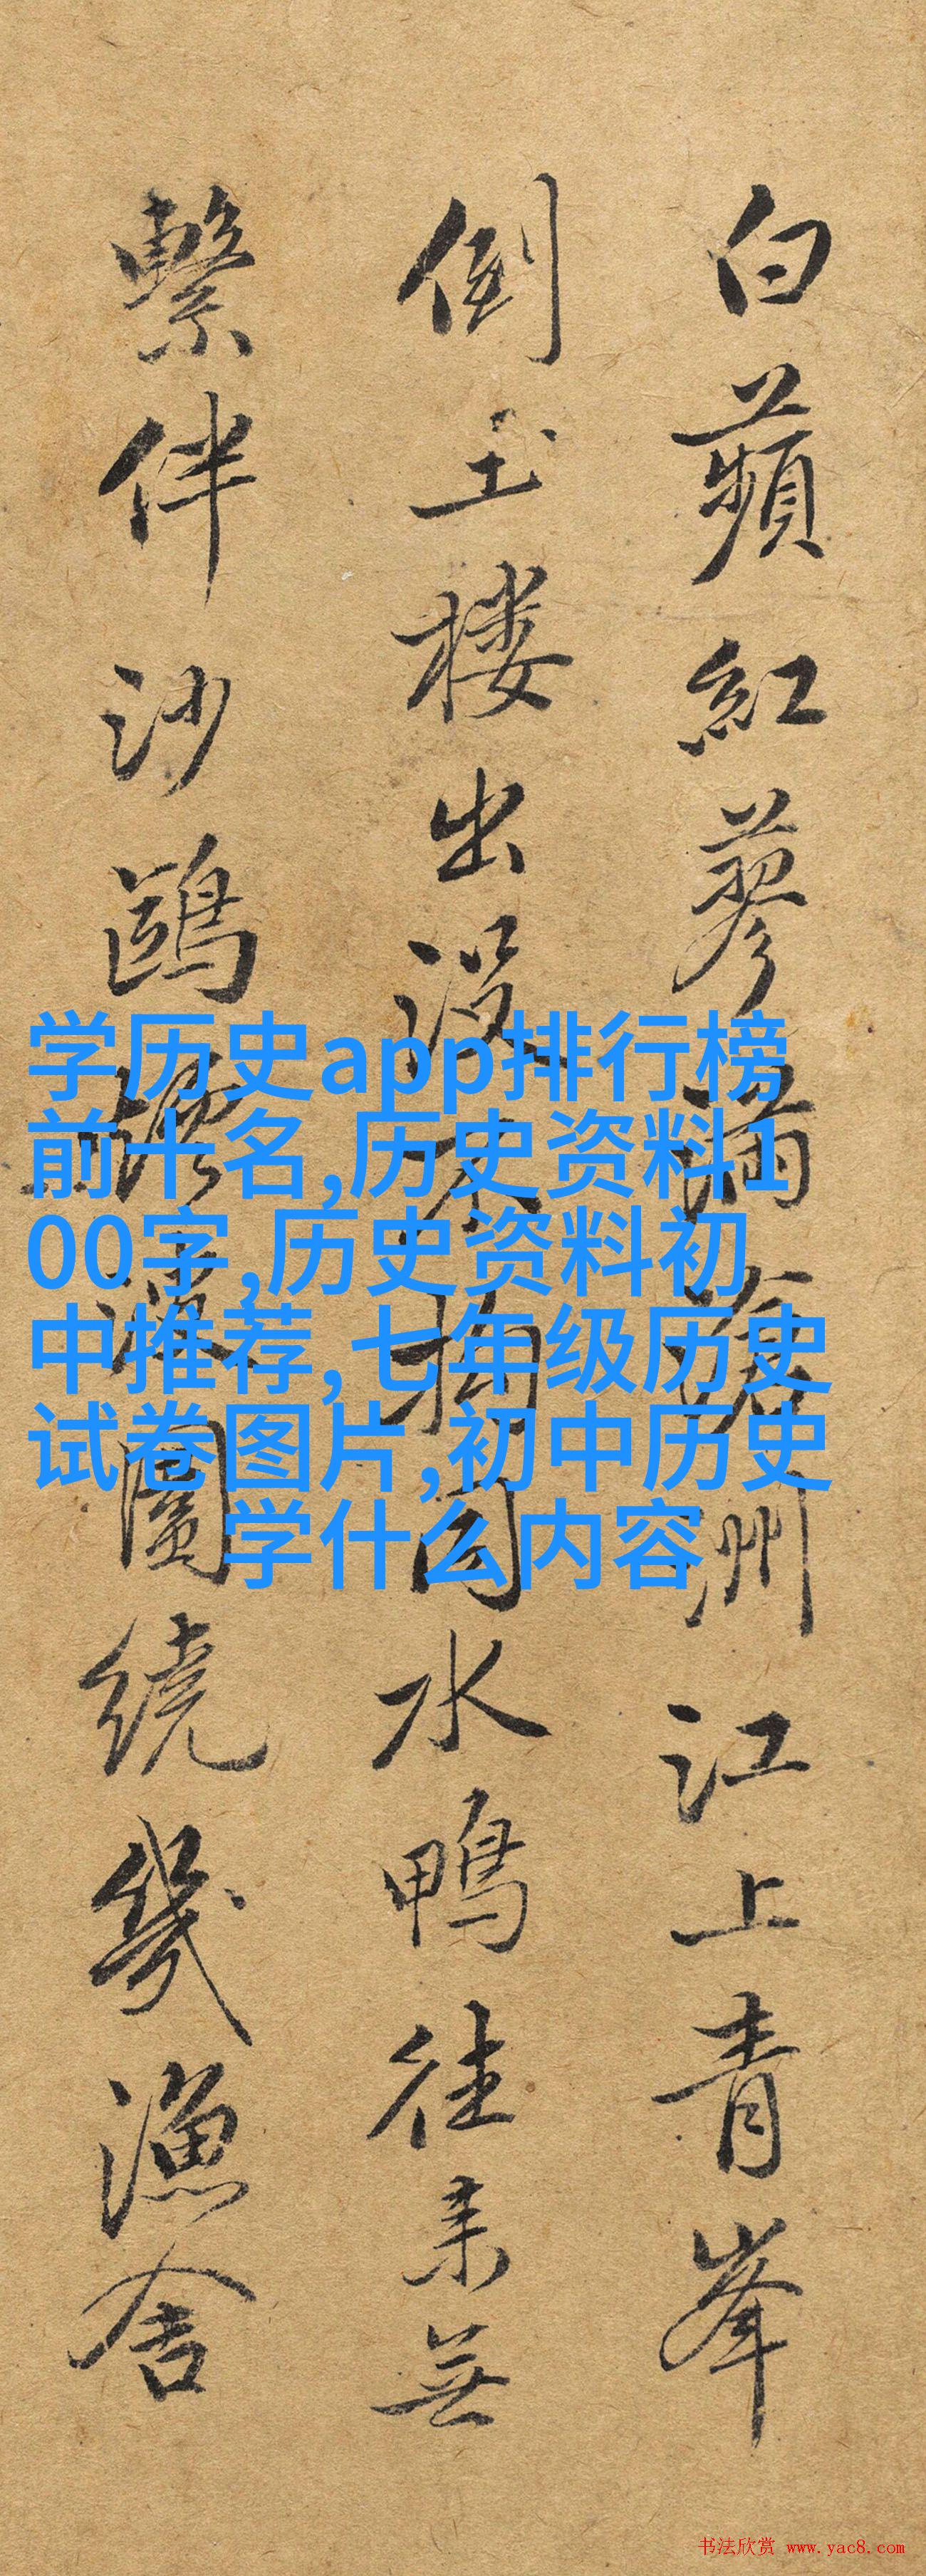 白蘋紅蓼滿洲江上青峯
倒玉楼出沒不拘同水鴨往来無
繫伴沙鷗深圍繞幾漁舍
学历史app排行榜
前十名,历史资料1
00字,历史资料初
中推荐,七年级历史
试卷图片,初中历史
学什么内容
书法欣赏 www.yac8.com